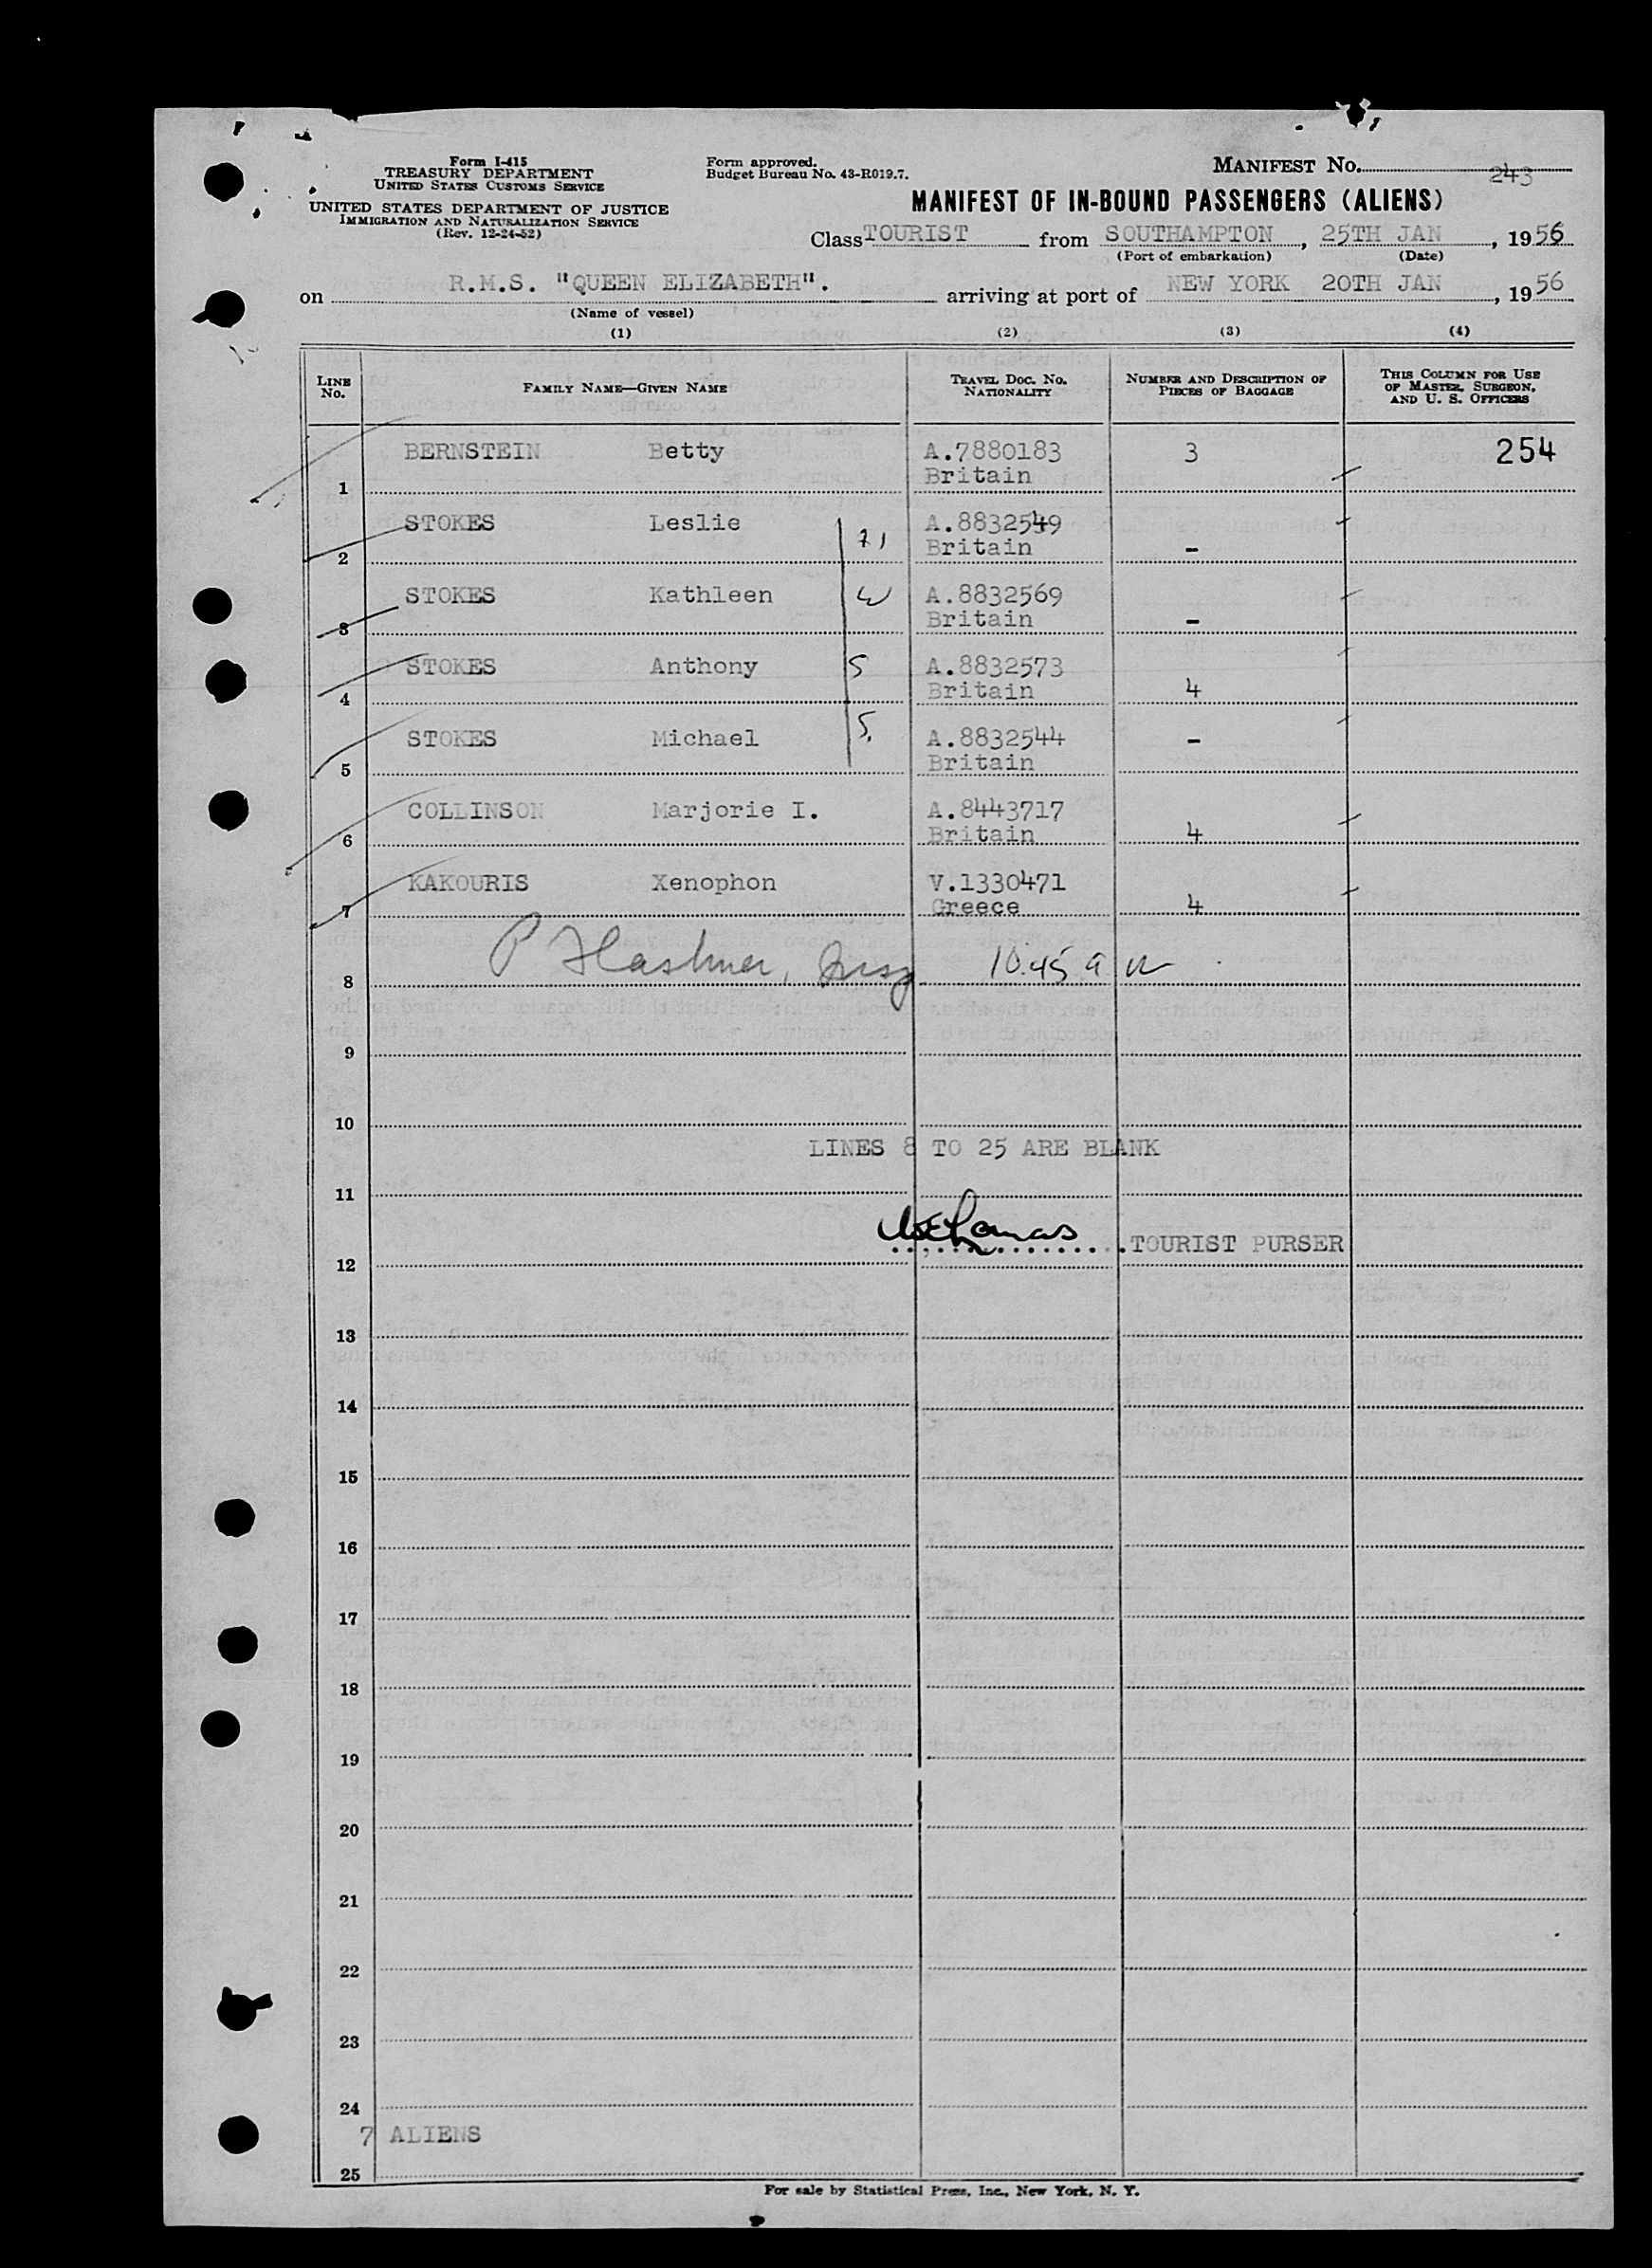 Form I-415
TREASURY DEPARTMENT
UNITED STATES CUSTOMS SERVICE
UNITED STATES DEPARTMENT OF JUSTICE
IMMIGRATION AND NATURALIZATION SERVICE
(Rev. 12-24-52)
Form approved.
Budget Bureau No. 43-R019.7.
MANIFEST No. 243
MANIFEST OF IN-BOUND PASSENGERS (ALIENS)
Class TOURIST from SOUTHAMPTON, 25TH JAN, 1956
(Port of embarkation) (Date)
on R.M.S. "QUEEN ELIZABETH". arriving at port of NEW YORK 20TH JAN, 1956
(Name of vessel)
(1) (2) (3) (4)
LINE No. FAMILY NAME—GIVEN NAME TRAVEL DOC. No. NATIONALITY NUMBER AND DESCRIPTION OF PIECES OF BAGGAGE THIS COLUMN FOR USE OF MASTER, SURGEON, AND U. S. OFFICERS
BERNSTEIN Betty A.7880183 3 254
1 Britain
STOKES Leslie A.8832549
2 Britain -
STOKES Kathleen W A.8832569
3 Britain -
STOKES Anthony S A.8832573
4 Britain 4
STOKES Michael S. A.8832544 -
5 Britain
COLLINSON Marjorie I. A.8443717
6 Britain 4
KAKOURIS Xenophon V.1330471
7 Greece 4
P 10.45 a
8
9
10
LINES 8 TO 25 ARE BLANK
11
TOURIST PURSER
12
13
14
15
16
17
18
19
20
21
22
23
24
7 ALIENS
25
For sale by Statistical Press, Inc., New York, N. Y.